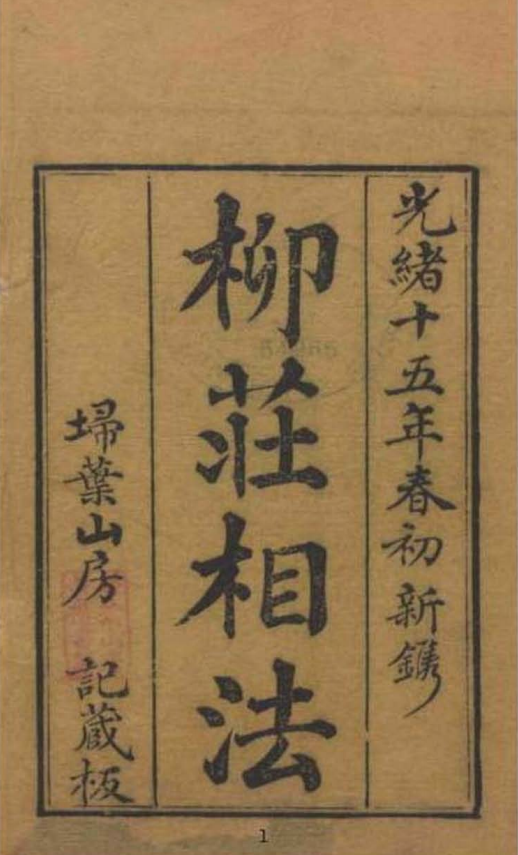 光緒十五年春初新鐫
柳莊相法
埽葉山房 記蔵板
1